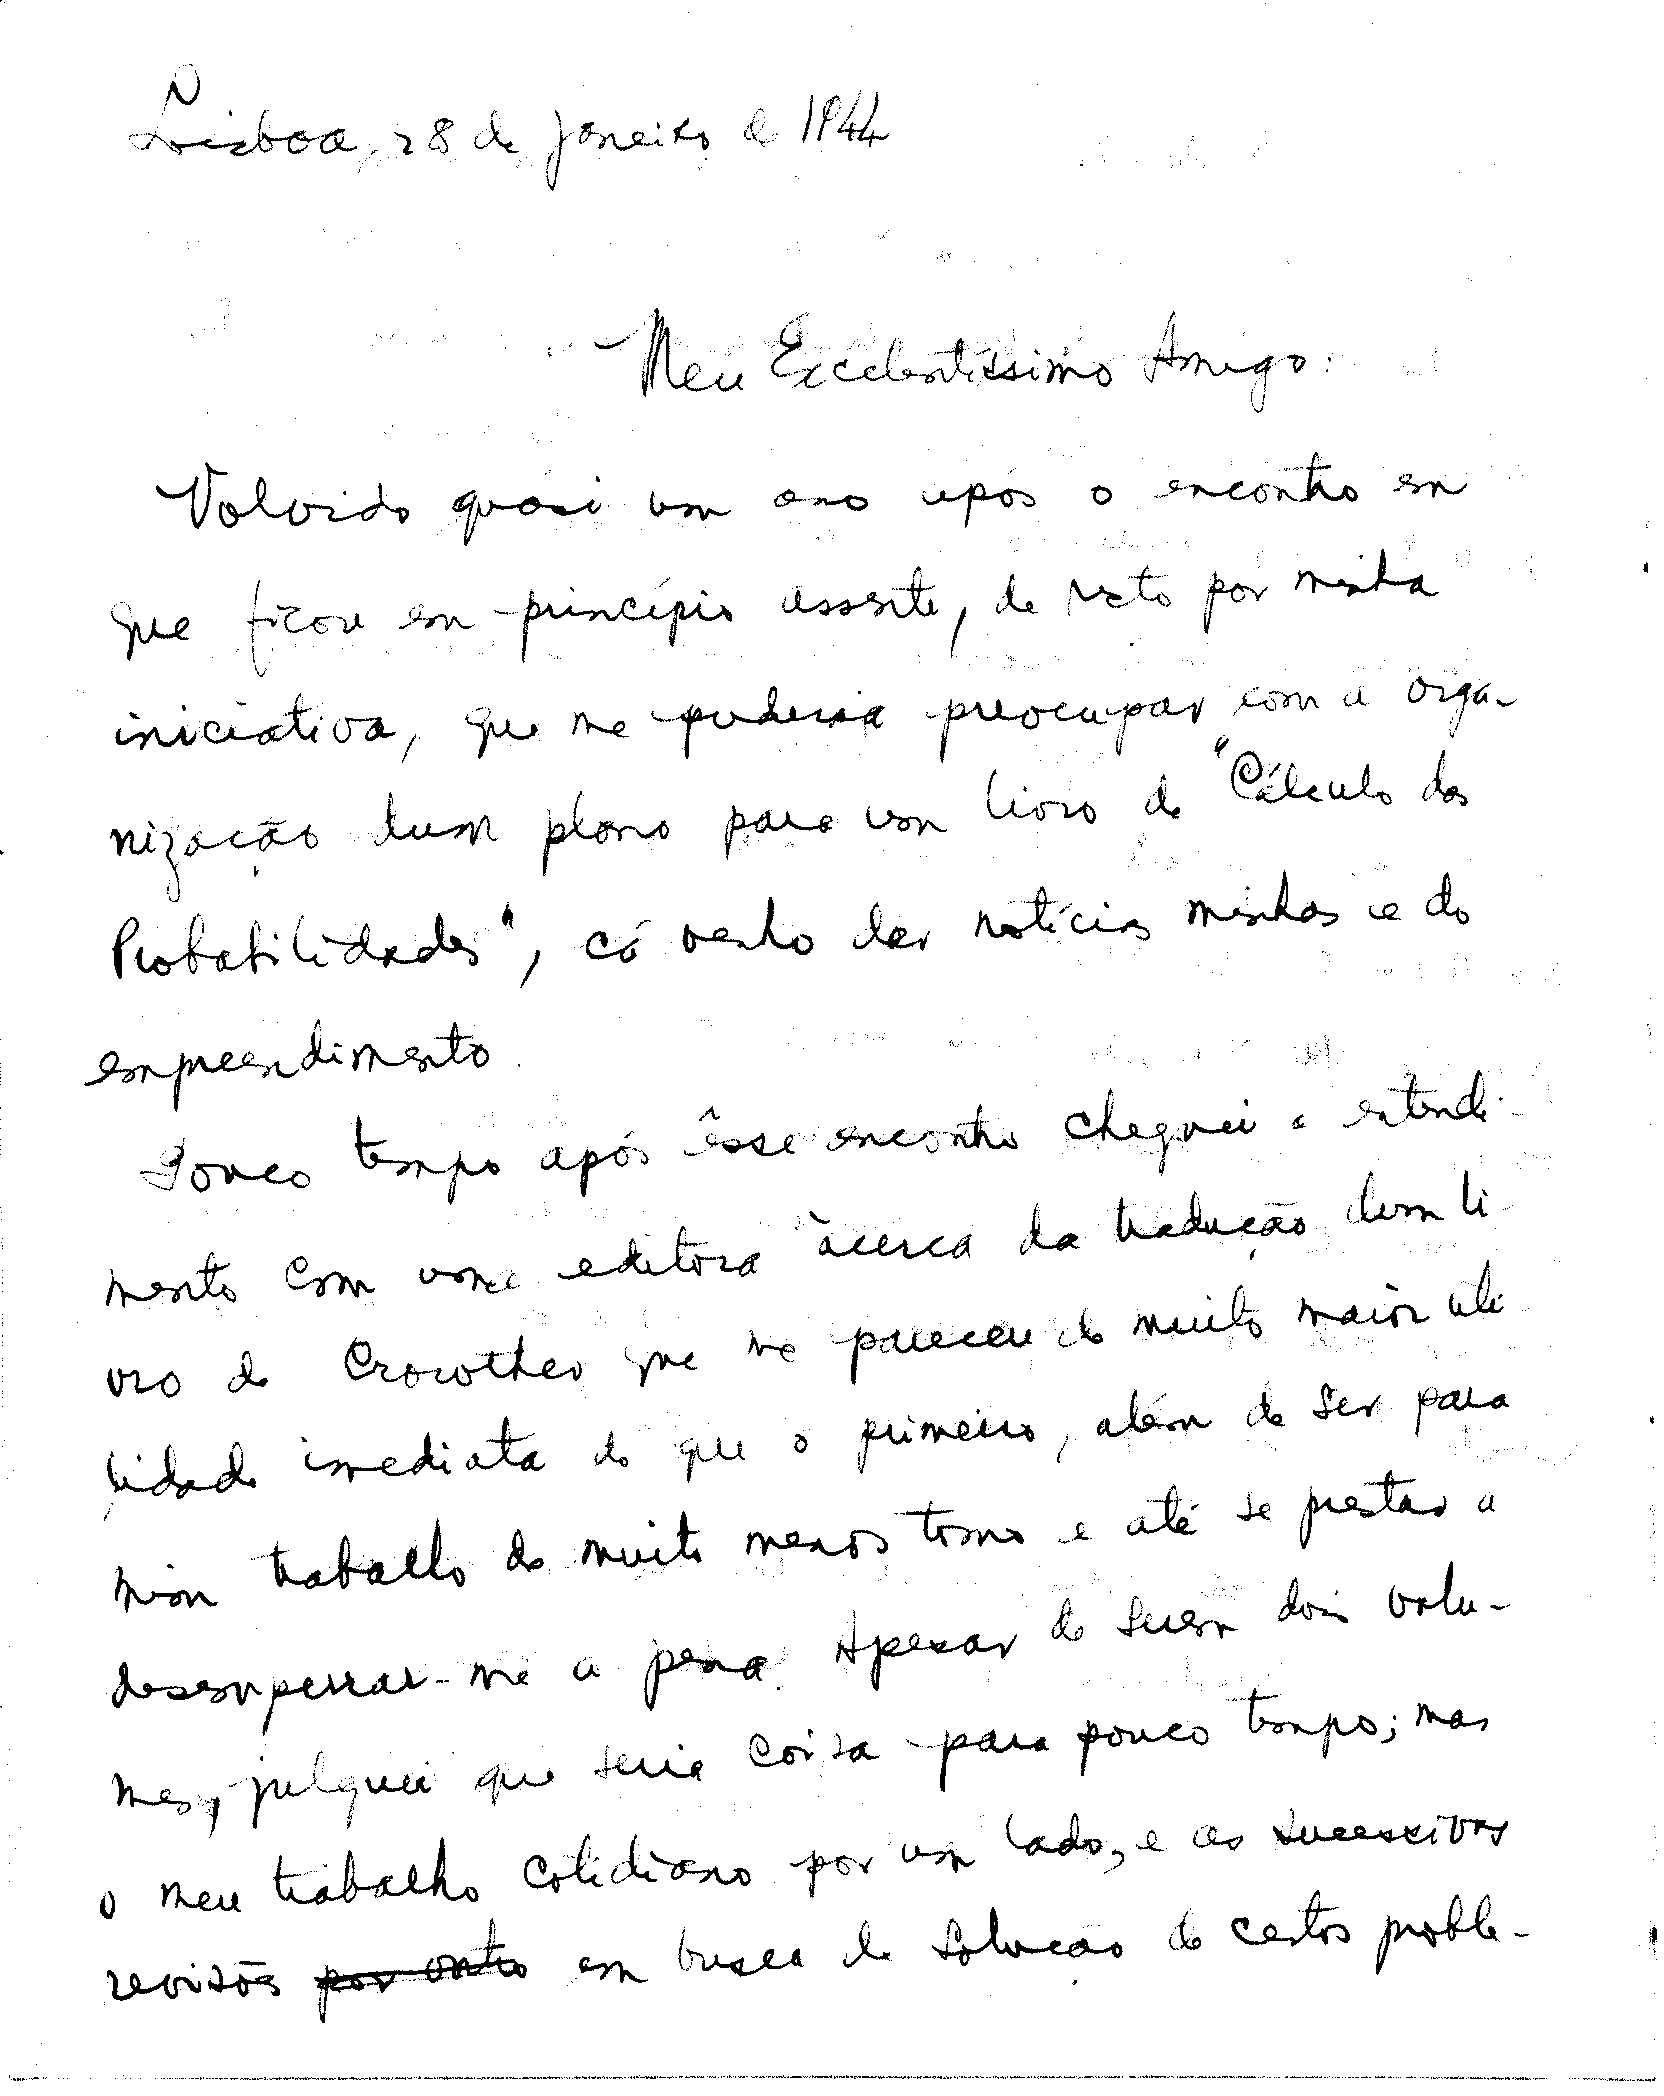 Lisboa, 28 de Janeiro de 1944
Meu Excelentíssimo Amigo:
Volvido quási um ano após o encontro em
que ficou em princípio assente, de resto por minha
iniciativa, que me poderia preocupar com a orga-
nização dum plano para um livro de "Cálculo das
Probabilidades", cá venho dar notícias minhas e do
empreendimento.
Pouco tempo após êsse encontro cheguei a entendi-
mento com uma editora àcerca da tradução dum li-
vro de Crowther que me pareceu de muito maior uti-
lidade imediata do que o primeiro, além de ser para
mim trabalho de muito menos tomo e até se prestar a
desemperrar-me a pena. Apesar de serem dois volu-
mes, julguei que seria coisa para pouco tempo; mas
o meu trabalho cotidiano por um lado, e as sucessivas
revisões por outro em busca de solução de certos proble-